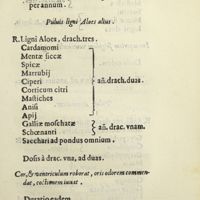 per annum.
Puluis ligni Aloes alius.
R. Ligni Aloes, drach. tres.
Cardamomi
Mentæ siccæ
Spicæ
Marrubij
Ciperi
Corticum citri
Mastiches
Anisi
Apij
añ. drach. duas.
Galliæ moschatæ
Schœnanti
añ. drac. vnam.
Sacchari ad pondus omnium.
Dosis à drac. vna, ad duas.
Cor, & ventriculum roborat, oris odorem commendat, coctionem iuuat.
Duratio eadem